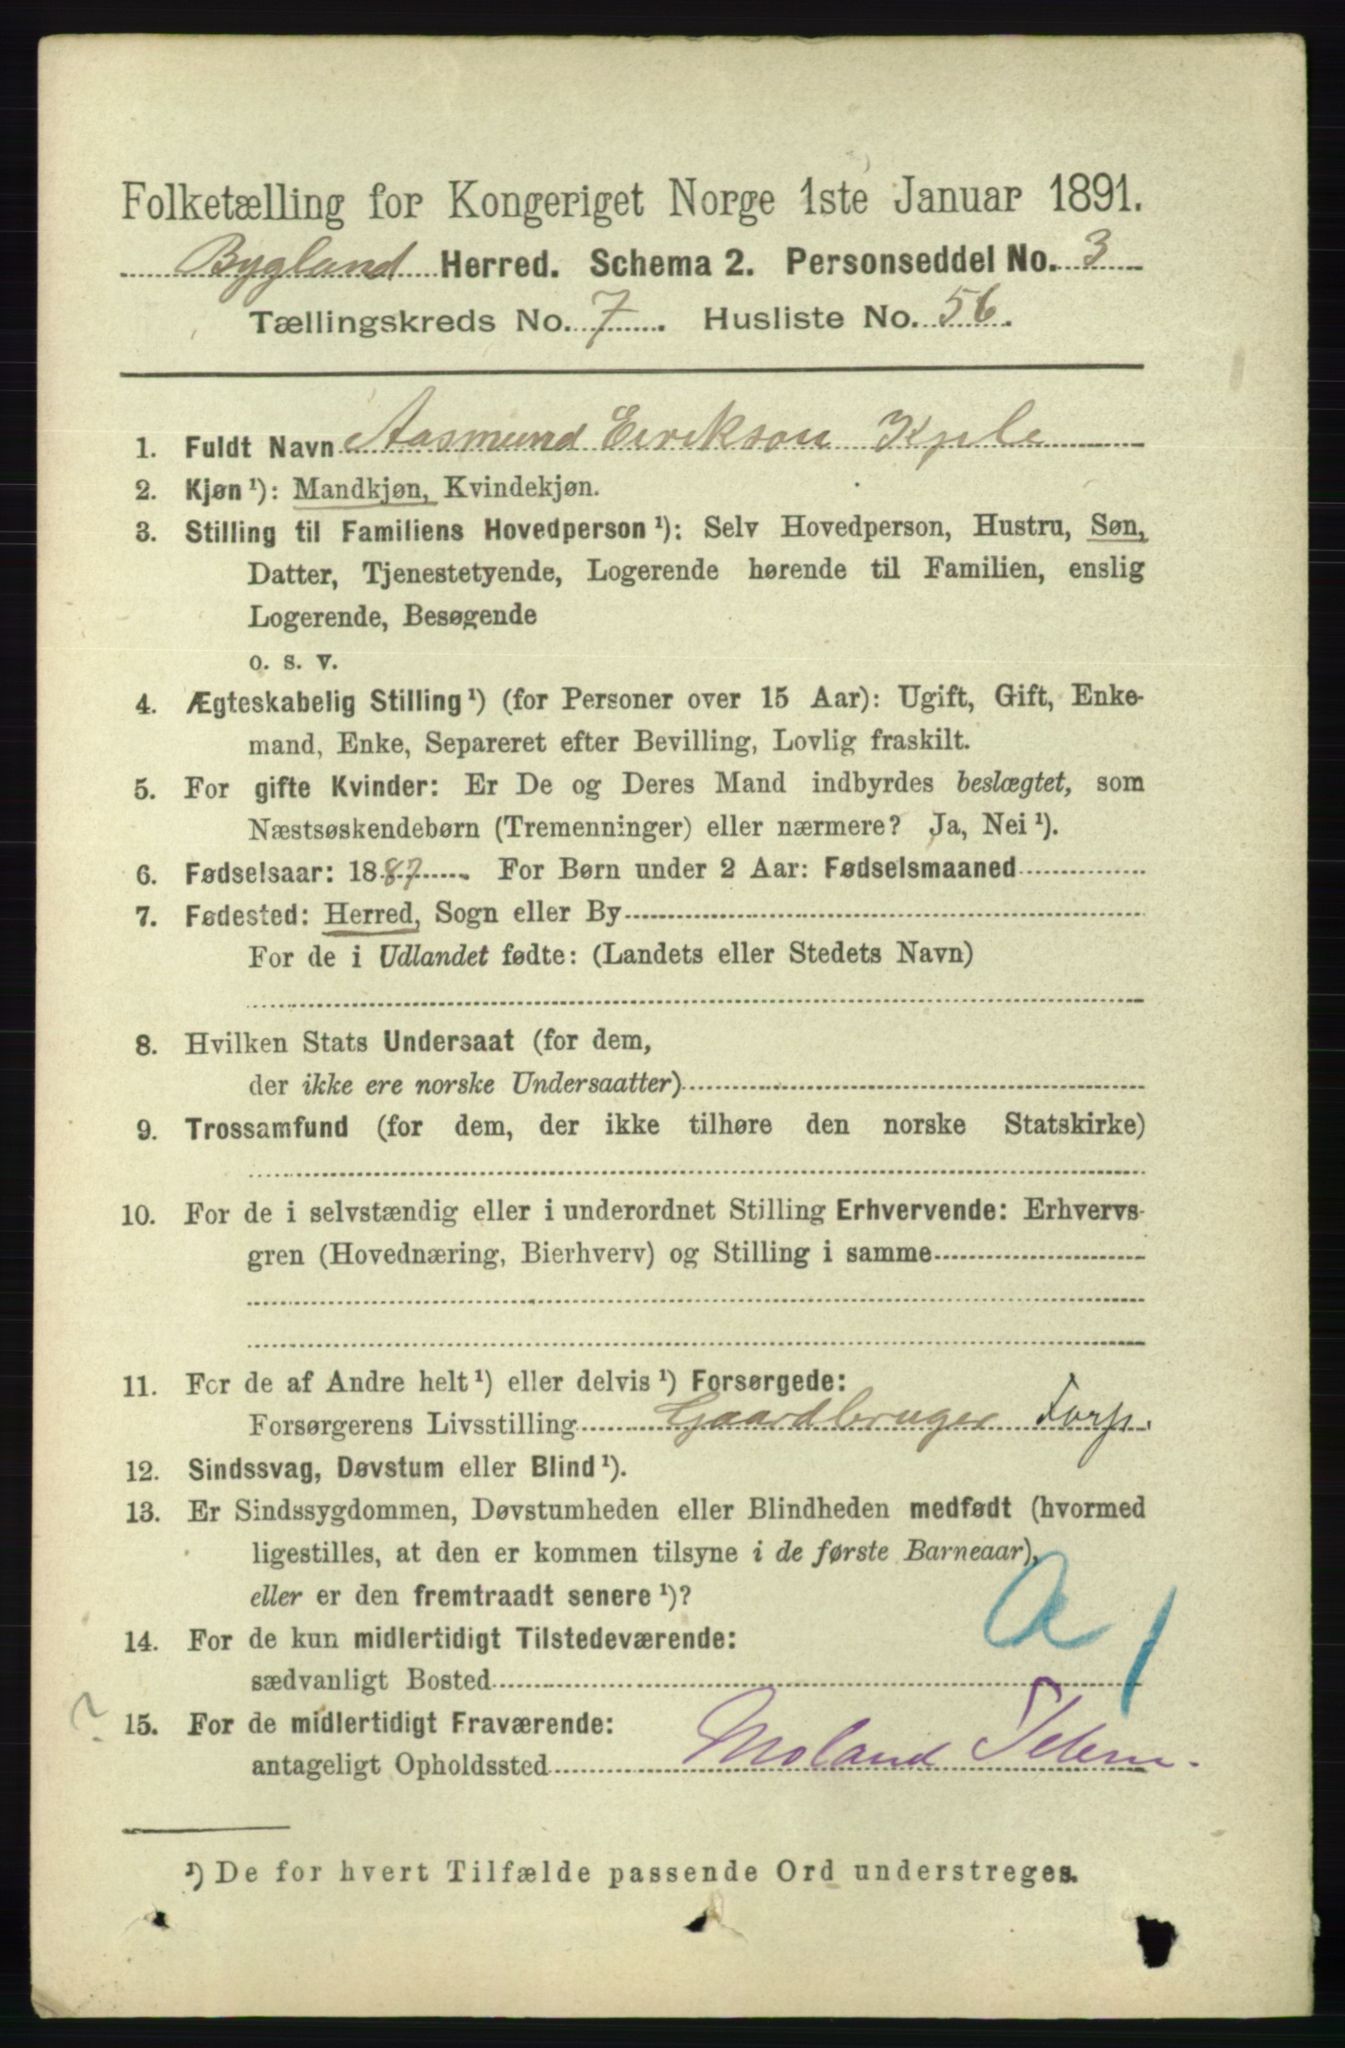 Folketælling for Kongeriget Norge 1ste Januar 1891.
Bygland Herred. Schema 2. Personseddel No. 3
Tællingskreds No. 7. Husliste No. 56.
1. Fuldt Navn Aasmund Eirikson
2. Kjøn ¹): Mandkjøn, Kvindekjøn.
3. Stilling til Familiens Hovedperson ¹): Selv Hovedperson, Hustru, Søn,
Datter, Tjenestetyende, Logerende hørende til Familien, enslig
Logerende, Besøgende
o. s. v.
4. Ægteskabelig Stilling ¹) (for Personer over 15 Aar): Ugift, Gift, Enke-
mand, Enke, Separeret efter Bevilling, Lovlig fraskilt.
5. For gifte Kvinder: Er De og Deres Mand indbyrdes beslægtet, som
Næstsøskendebørn (Tremenninger) eller nærmere? Ja, Nei ¹).
6. Fødselsaar: 1887. For Børn under 2 Aar: Fødselsmaaned
7. Fødested: Herred, Sogn eller By
For de i Udlandet fødte: (Landets eller Stedets Navn)
8. Hvilken Stats Undersaat (for dem,
der ikke ere norske Undersaatter)
9. Trossamfund (for dem, der ikke tilhøre den norske Statskirke)
10. For de i selvstændig eller i underordnet Stilling Erhvervende: Erhvervs-
gren (Hovednæring, Bierhverv) og Stilling i samme
11. For de af Andre helt ¹) eller delvis ¹) Forsørgede:
Forsørgerens Livsstilling Gaardbruger Forp.
12. Sindssvag, Døvstum eller Blind ¹).
13. Er Sindssygdommen, Døvstumheden eller Blindheden medfødt (hvormed
ligestilles, at den er kommen tilsyne i de første Barneaar),
eller er den fremtraadt senere ¹)?
a 1
14. For de kun midlertidigt Tilstedeværende:
sædvanligt Bosted
? 15. For de midlertidigt Fraværende:
antageligt Opholdssted Moland Telem.
¹) De for hvert Tilfælde passende Ord understreges.